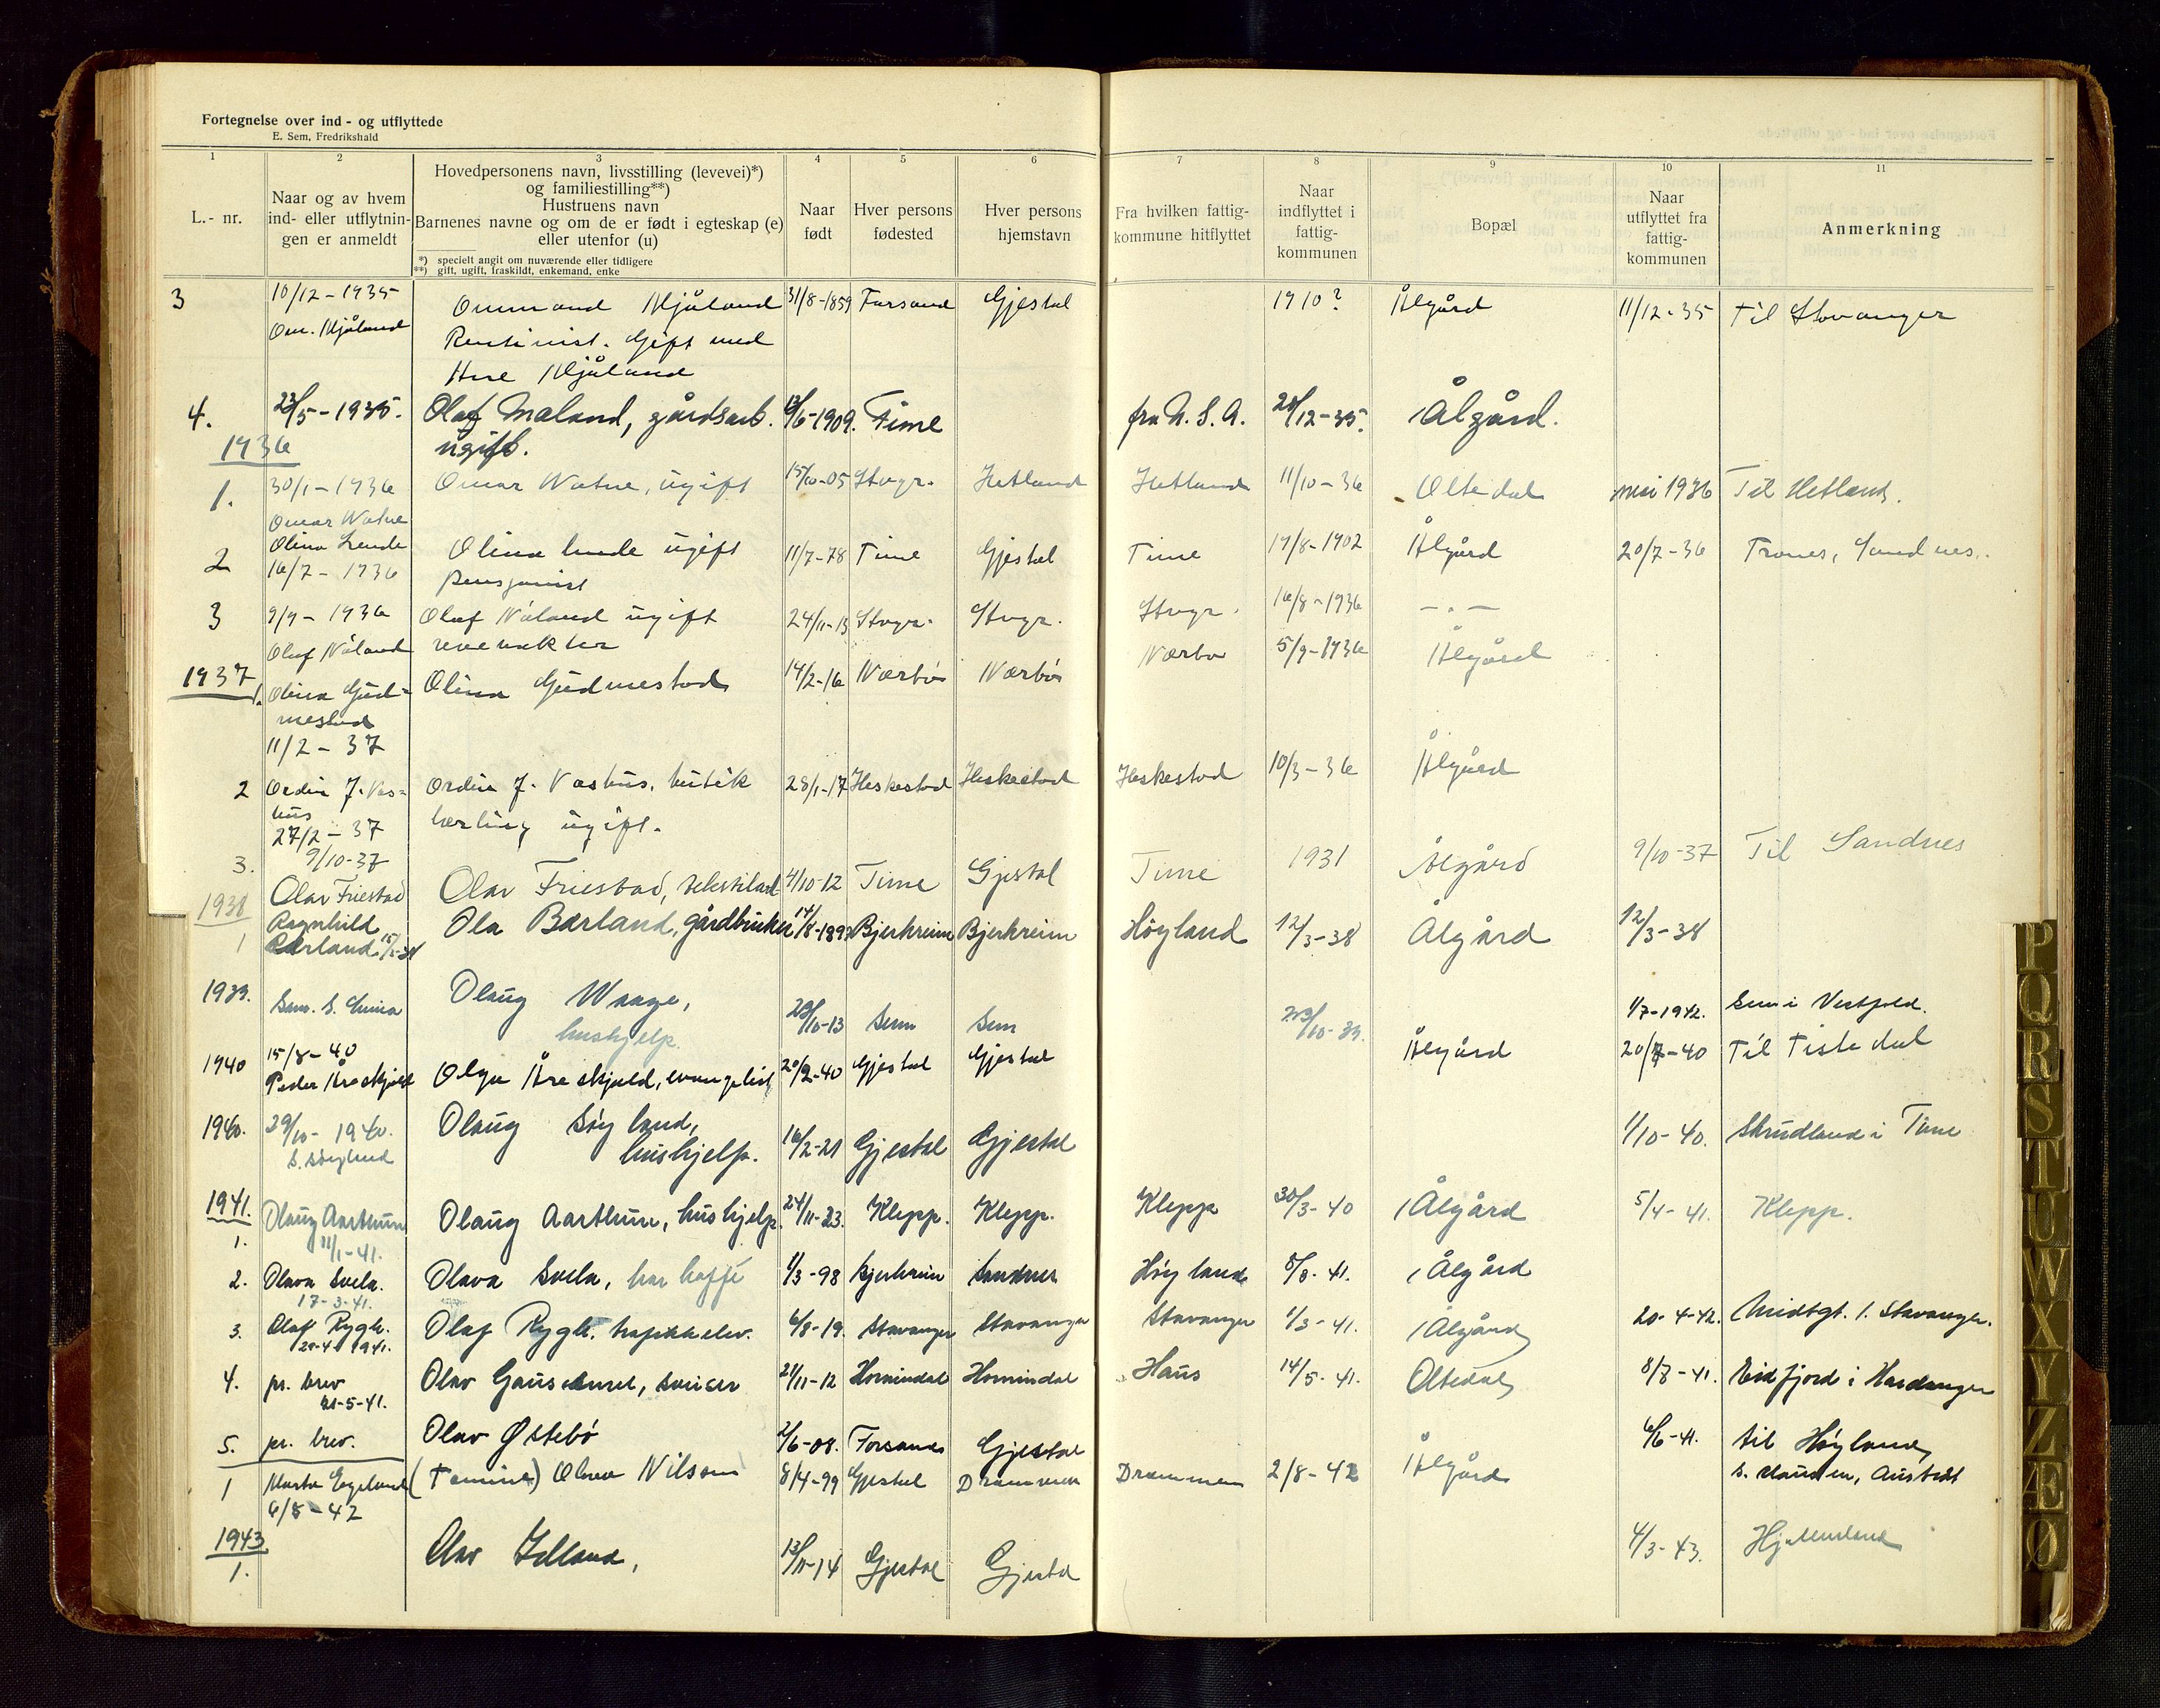 Fortegnelse over ind- og utflyttede
E. Sem, Fredrikshald
1 2 3 4 5 6 7 8 9 10 11
L.- nr.
Naar og av hvem ind- eller utflytningen er anmeldt
Hovedpersonens navn, livsstilling (levevei)*)
og familiestilling**)
Hustruens navn
Barnenes navne og om de er født i egteskap (e)
eller utenfor (u)
*) specielt angit om nuværende eller tidligere
**) gift, ugift, fraskildt, enkemand, enke
Naar født
Hver persons fødested
Hver persons hjemstavn
Fra hvilken fattigkommune hitflyttet
Naar indflyttet i fattigkommunen
Bopæl
Naar utflyttet fra fattigkommunen
Anmerkning
3 10/12-1935 Ommund Mjåland 31/8-1859 Forsand Gjestal 1910? Ålgård 11/12-35 Til Stavanger
Om. Mjåland Rentinist. Gift med
Mjåland
4. 23/5-1935. Olaf Maland, gårdsarb. /6-1909. Time fra U.S.A. 20/12-35. Ålgård.
1936 ugift.
1. 30/1-1936 Omar Watne, ugift 15/10-05 Stvgr. Hetland Hetland 11/10-36 Oltedal mai 1936 Til Hetland.
Omar Watne
Olina Lende Olina Lende ugift 11/7-78 Time Gjestal Time 17/8-1902 Ålgård 20/7-36 Trones, Sandnes.
2 16/7-1936 Pensjonist
3 9/9-1936 Olaf Nåland ugift 24/11-13 Stvgr. Stvgr. Stvgr. 16/8-1936 -"-
Olaf Nåland revevokter
1937
1. Olina Gudmestad Olina Gudmestad 14/2-16 Nærbø Nærbø Nærbø 5/9-1936 Ålgård
11/2-37
2 Ordin J. Vashus Ordin J. Vashus, butik 28/1-17 Heskestad Heskestad Heskestad 10/3-36 Ålgård
27/2-37 lærling ugift.
3. 9/10-37
Olav Friestad Olav Friestad, tekstilarb 4/10-12 Time Gjestal Time 1931 Ålgård 9/10-37 Til Sandnes
1938
1 Ragnhild Bærland Ola Bærland, gårdbruker 14/8-1893 Bjerkreim Bjerkreim Høyland 12/3-38 Ålgård 12/3-38
1939. Olaug Waage, 23/10-13 Sem Sem 23/10-39. 1/7-1942. Sem i Vestfold.
hushjelp.
1940 15/8-40
Peder Åreskjold Olga Åreskjold, evangelist 20/2-40 Gjestal Gjestal Ålgård 20/7-40 Til Tistedal
1940. 29/10-1940. Olaug Søyland, 16/2-21 Gjestal Gjestal 1/10-40. Skrudland i Time
S. Søyland hushjelp.
1941.
1. Olaug Aarthun Olaug Aarthun, hushjelp. 24/11-23. Klepp. Klepp. Klepp 30/3-40 Ålgård 5/4-41. Klepp.
11/1-41.
2. Olava Svela. Olava Svela, har kaffé 1/3-98 Bjerkreim Sandnes Høyland 8/8-41. Ålgård
17-3-41.
3. Olaf Rygh. Olaf Rygh, trafikkelev. 6/8-19. Stavanger Stavanger Stavanger 1/3-41. Ålgård 20-4-42. Midtgt. 1. Stavanger.
20-4 1941.
4. pr. brev Olav sveiser 21/11-12 Hornindal Hornindal Haus 14/5-41. Oltedal 8/8-41. Eidfjord i Hardanger
21-5-41.
5. pr. brev. Olav Østebø 2/6-08. Forsand Gjestal 6/6-41. til Høyland,
1 Marta Egeland (Tomine) Olava Nilsen 8/4-99 Gjestal Drammen Drammen 2/8-42 Ålgård
6/8-42
1943
1. Olav 13/11-14 Gjestal Gjestal 4/3-43. Hjelmeland
P
Q
R
S
T
U
W
X
Y
Z
Æ
Ø